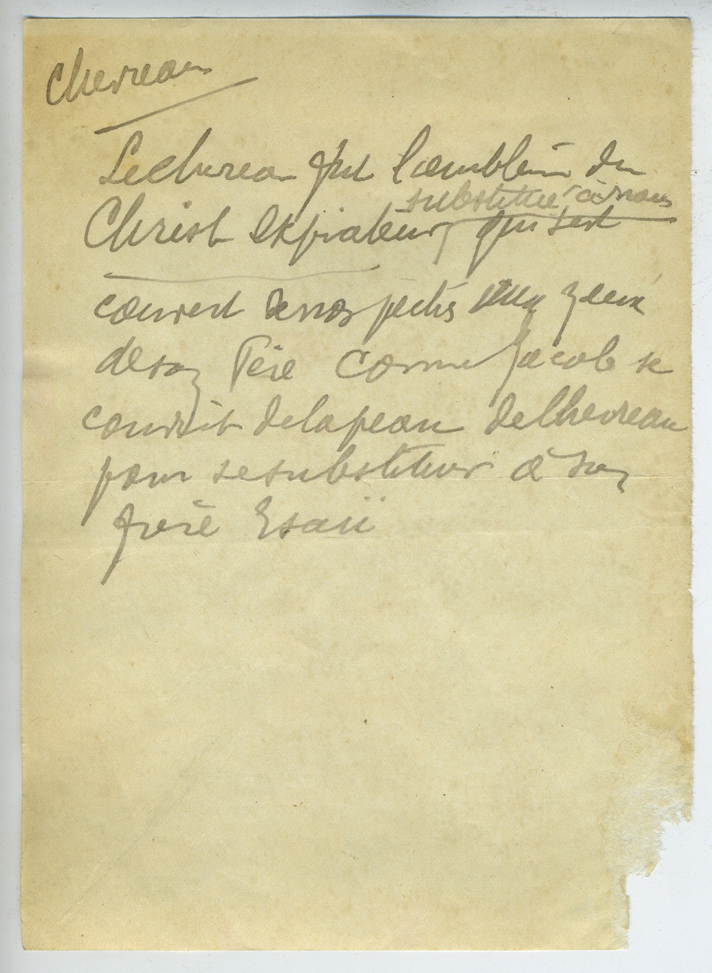 Chevreau
Le chevreau fut l'emblème du
substitué à nous
Christ Expiateur, qui s'est
couvert de nos péchés aux yeux
de son Père comme Jacob se
couvrit de la peau de chevreau
pour se substituer à son
frère Esaü